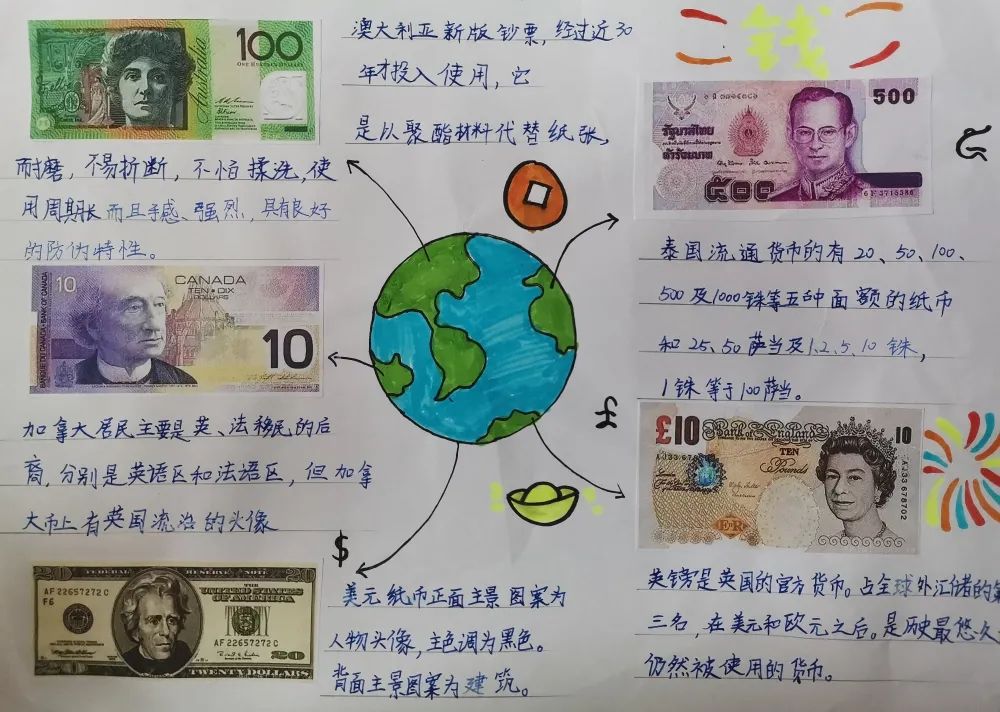 钱
100
ONE HUNDRED DOLLARS
Australia
澳大利亚新版钞票，经过近30
年才投入使用，它
是以聚酯材料代替纸张，
耐磨，不易折断，不怕揉洗，使
用周期长而且手感强烈，具有良好
的防伪特性。
500
รัฐบาลไทย
ห้าร้อยบาท
๕๐๐
6F 3715386
泰国流通货币的有20、50、100、
500及1000铢等五种面额的纸币
和25、50萨当及1、2、5、10铢，
1铢等于100萨当。
10
CANADA
TEN•DIX
DOLLARS
10
BANQUE DU CANADA•BANK OF CANADA
加拿大居民主要是英、法移民的后
裔，分别是英语区和法语区，但加拿
大币上有英国流治的头像
£
£10
Bank of England
10
AJ33 678702
TEN
Pounds
E♦R
AJ33 678702
英镑是英国的官方货币。占全球外汇储的第
三名，在美元和欧元之后。是历史最悠久
仍然被使用的货币。
$
20
FEDERAL RESERVE NOTE
20
AF 22657272 C
F6
THE
UNITED STATES
OF AMERICA
AF 22657272 C
20
TWENTY DOLLARS
美元纸币正面主景图案为
人物头像，主色调为黑色。
背面主景图案为建筑。